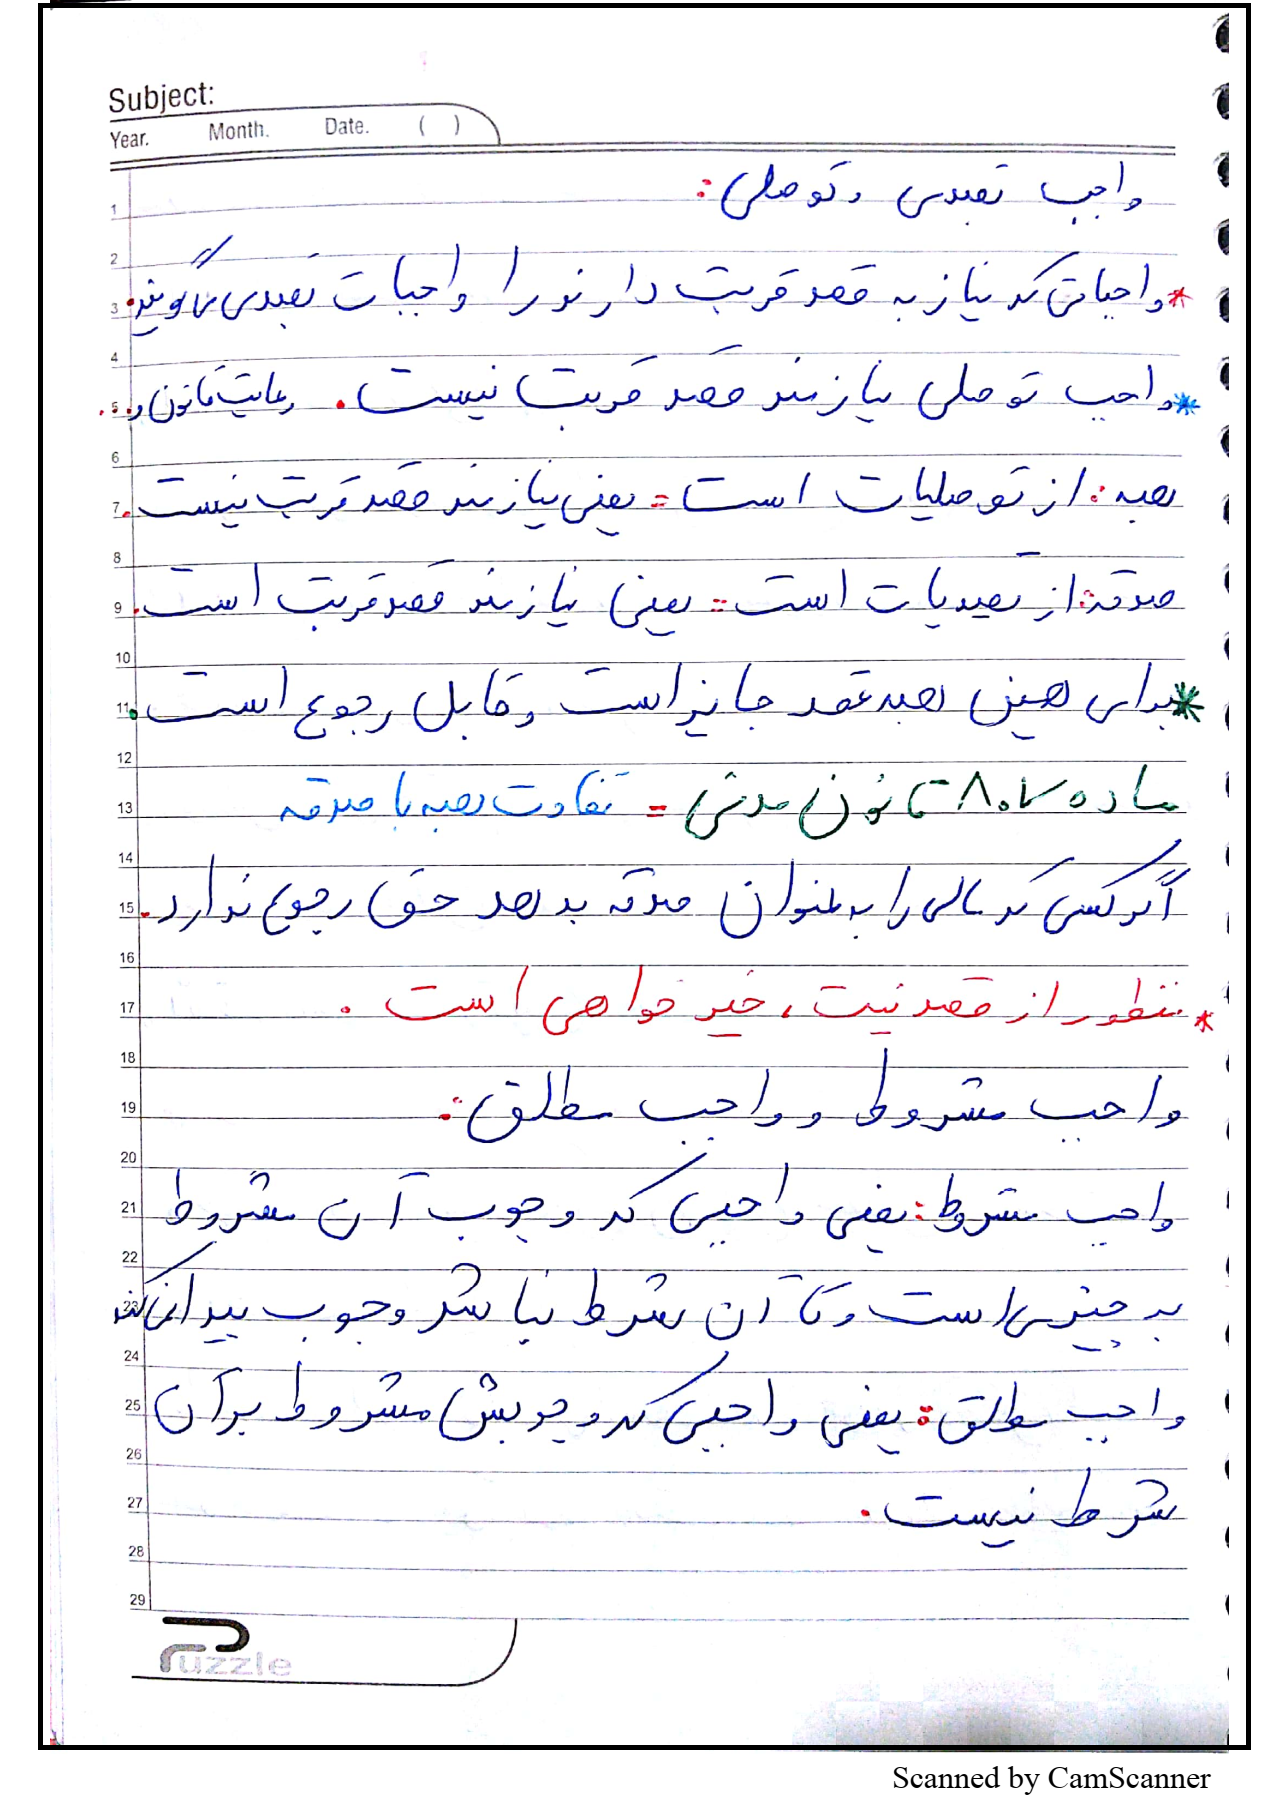 Subject:
Year. Month. Date. ( )
واجب تعبدی و توصلی:
* واجباتی که نیاز به قصد قربت دارند را واجبات تعبدی می گویند.
* واجب توصلی نیازمند قصد قربت نیست. رعایت قانون و..
هبه: از توصلیات است = یعنی نیازمند قصد قربت نیست.
صدقه: از تعبدیات است = یعنی نیازمند قصد قربت است.
* برای همین هبه عقد جایز است و قابل رجوع است.
ماده ۸۰۷ قانون مدنی = تفاوت هبه با صدقه
اگر کسی که مالی را به عنوان صدقه بدهد حق رجوع ندارد.
* منظور از قصد نیت، خیر خواهی است.
واجب مشروط و واجب مطلق:
واجب مشروط: یعنی واجبی که وجوب آن مشروط
به چیزی است و تا آن شرط نباشد وجوب پیدا نمی کند
واجب مطلق: یعنی واجبی که وجوبش مشروط بر آن
شرط نیست.
1
2
3
4
5
6
7
8
9
10
11
12
13
14
15
16
17
18
19
20
21
22
23
24
25
26
27
28
29
Puzzle
Scanned by CamScanner